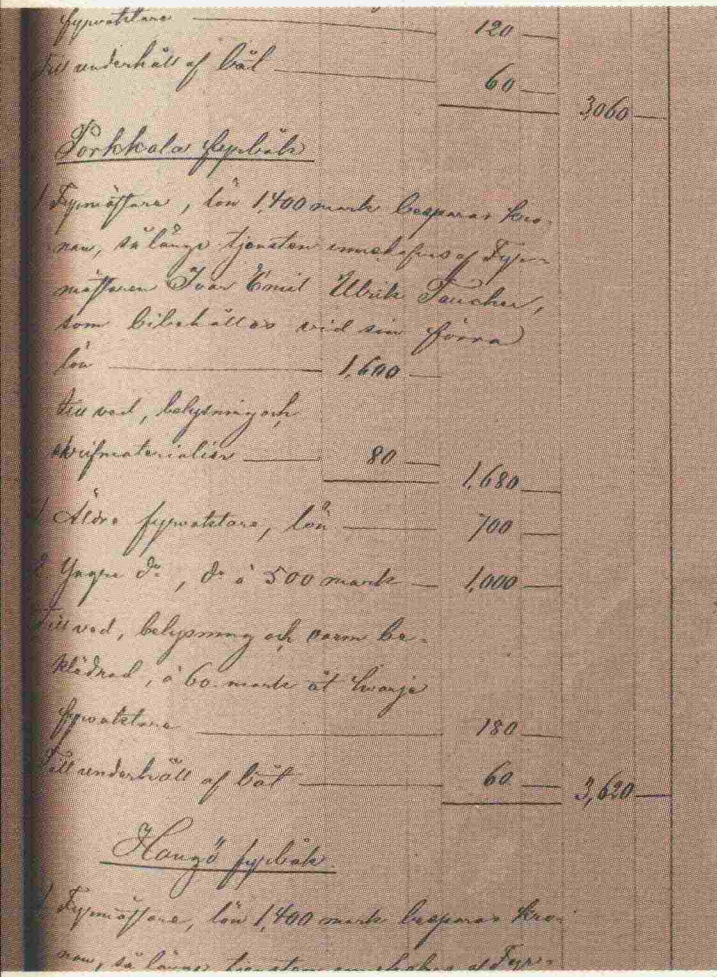 fyrvaktare 120 —
Till underhåll af båt 60 — 3,060 —
Porkkala fyrbåk
1 Fyrmästare, lön 1,400 mark besparas kro-
nan, så länge tjensten innehafves af Fyr-
mästaren Ivar Emil Ulrik Taucher,
som bibehålles vid sin förra
lön 1,600 —
Till ved, belysning och
skrifmaterialier 80 — 1,680 —
1 Äldre fyrvaktare, lön 700 —
2 Yngre do, do à 500 mark 1,000 —
Till ved, belysning och varm be-
klädnad, à 60 mark åt hvarje
fyrvaktare 180 —
Till underhåll af båt 60 — 3,620 —
Hangö fyrbåk.
1 Fyrmästare, lön 1,400 mark besparas kro-
nan, så länge tjensten innehafves af Fyr-